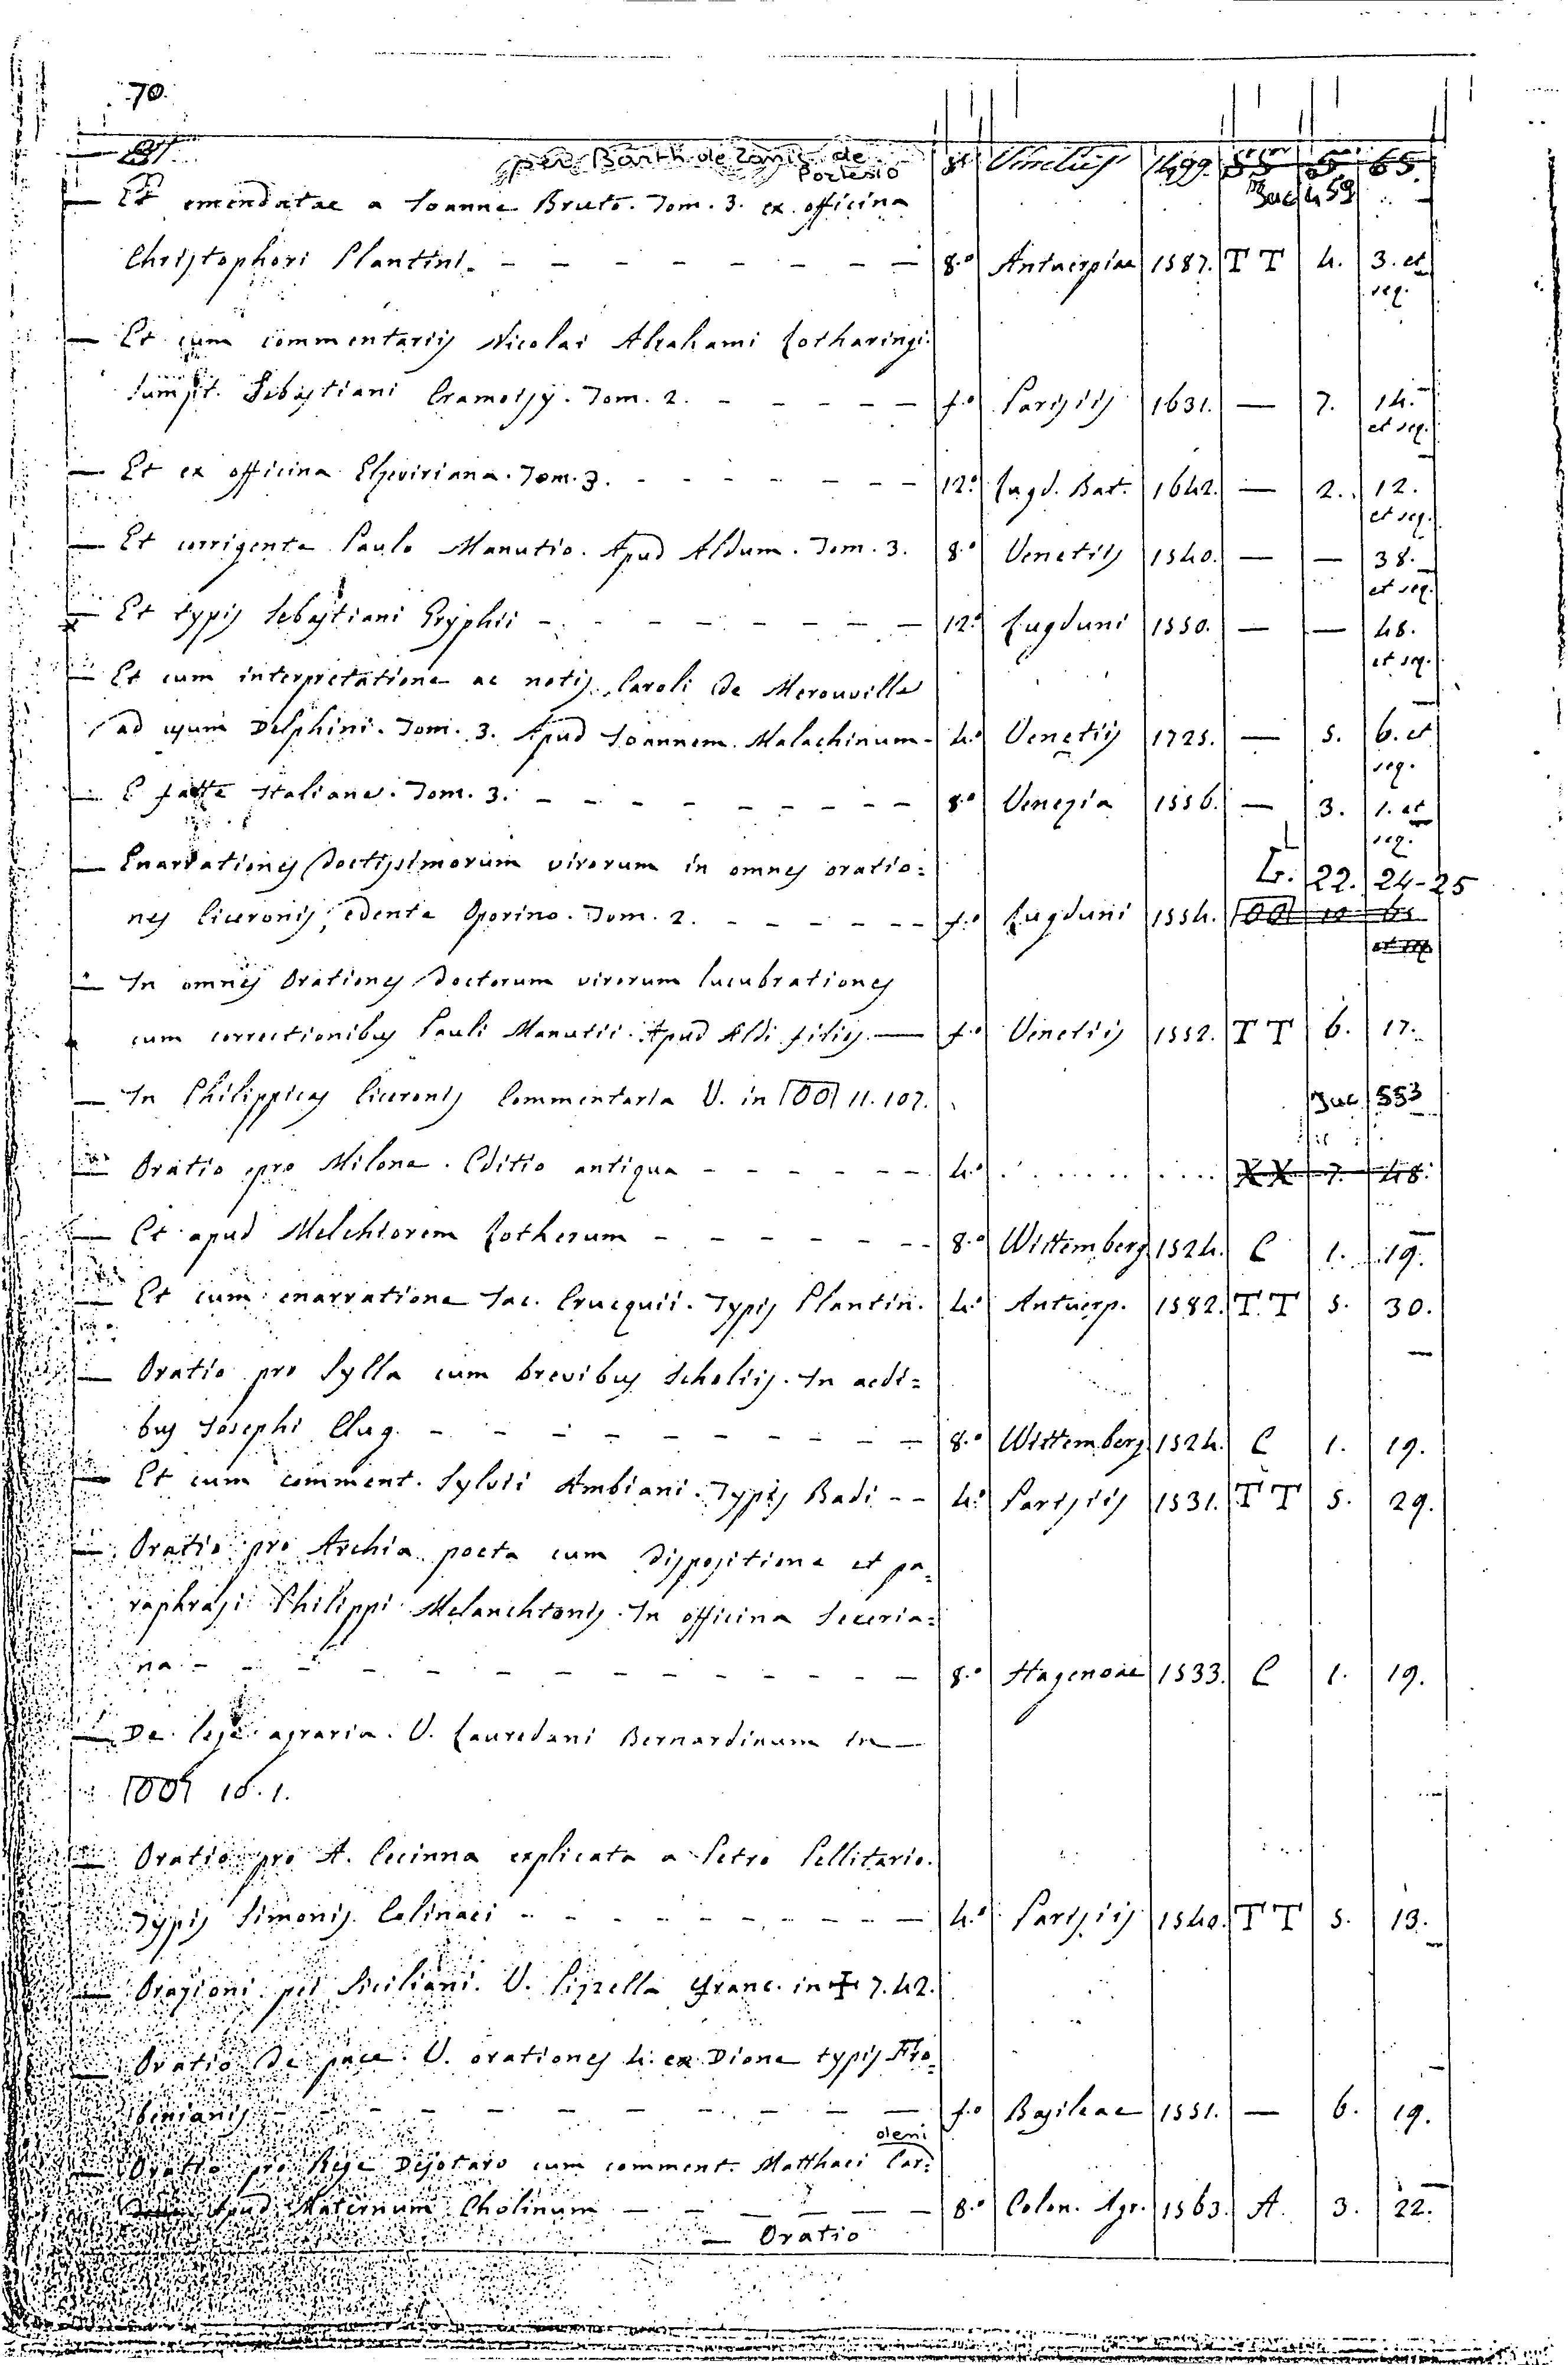 70.
— Et per Barth de Zanis de Portesio 8º Venetiis 1499. SS 5 65.
Inc 4 59
— Et emendatae a Joanne Bruto. Tom. 3. ex officina
Christophori Plantini. — 8.º Antuerpiae 1587. T T 4. 3. et seq.
— Et cum commentariis Nicolai Abrahami Lotharingi.
sumpt. Sebastiani Cramoisy. Tom. 2. — f.º Parisiis 1631. — 7. 14. et seq.
— Et ex officina Elzeviriana. Tom. 3. — 12.º Lugd. Bat. 1642. — 2. 12. et seq.
— Et corrigente Paulo Manutio. Apud Aldum. Tom. 3. 8.º Venetiis 1540. — — 38. et seq.
— Et typis Sebastiani Gryphii — 12.º Lugduni 1550. — — 48. et seq.
— Et cum interpretatione ac notis Caroli de Merouville
ad usum Delphini. Tom. 3. Apud Joannem Malachinum - 4.º Venetiis 1725. — 5. 6. et seq.
— E fatte Italiane. Tom. 3. — 8.º Venezia 1556. — 3. 1. et seq.
— Enarrationes doctissimorum virorum in omnes oratio= L. 22. 24-25
nes Ciceronis, edente Oporino. Tom. 2. — f.º Lugduni 1554. OO 10 et seq
— In omnes Orationes doctorum virorum lucubrationes
cum correctionibus Pauli Manutii. Apud Aldi filios. — f.º Venetiis 1552. T T 6. 17.
— In Philippicas Ciceronis Commentaria V. in OO 11. 107. Inc 553
— Oratio pro Milone. Editio antiqua — 4.º . . . . . . . . . . X X 7. 48.
— Et apud Melchiorem Lotherum — 8.º Wittemberg 1524. C 1. 19.
— Et cum enarratione Jac. Crucquii. Typis Plantin. 4.º Antuerp. 1582. T T 5. 30.
— Oratio pro Sylla cum brevibus Scholiis. In aedi=
bus Josephi Clug. — 8.º Wittemberg 1524. C 1. 19.
— Et cum comment. Sylvii Ambiani. Typis Badi - - 4.º Parisiis 1531. T T 5. 29.
— Oratio pro Archia poeta cum dispositione et pa=
raphrasi Philippi Melanchtonis. In officina Seceria=
na — 8.º Hagenoae 1533. C 1. 19.
— De lege agraria. V. Lauredani Bernardinum in —
OO 10. 1.
— Oratio pro A. Cecinna explicata a Petro Pellitario.
Typis Simonis Colinaei — 4.º Parisiis 1540. T T 5. 13.
— Orazioni pei Siciliani. V. Pizzella Franc. in ✝ 7. 42.
— Oratio de pace. V. orationes 4. ex Dione typis Fro=
benianis — f.º Basileae 1551. — 6. 19.
— Oratio pro Rege Dejotaro cum comment. Matthaei Car=
oleni
Apud Maternum Cholinum — 8.º Colon. Agr. 1563. A. 3. 22.
— Oratio